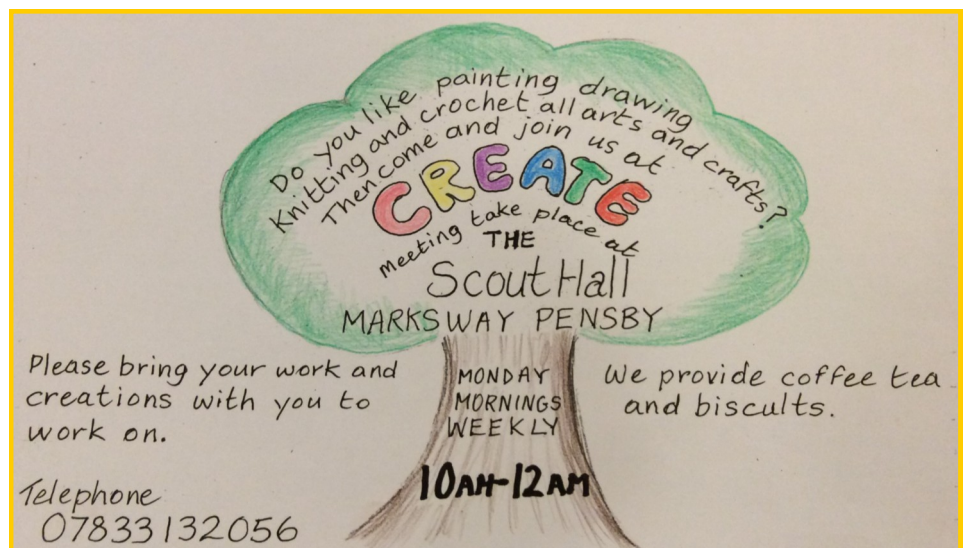 Do you like painting drawing
Knitting and crochet all arts and crafts?
Then come and join us at
CREATE
Meeting take place at
THE
Scout Hall
MARKSWAY PENSBY
Please bring your work and
creations with you to
work on.
MONDAY
MORNINGS
WEEKLY
10AM-12AM
We provide coffee tea
and biscuits.
Telephone
07833132056